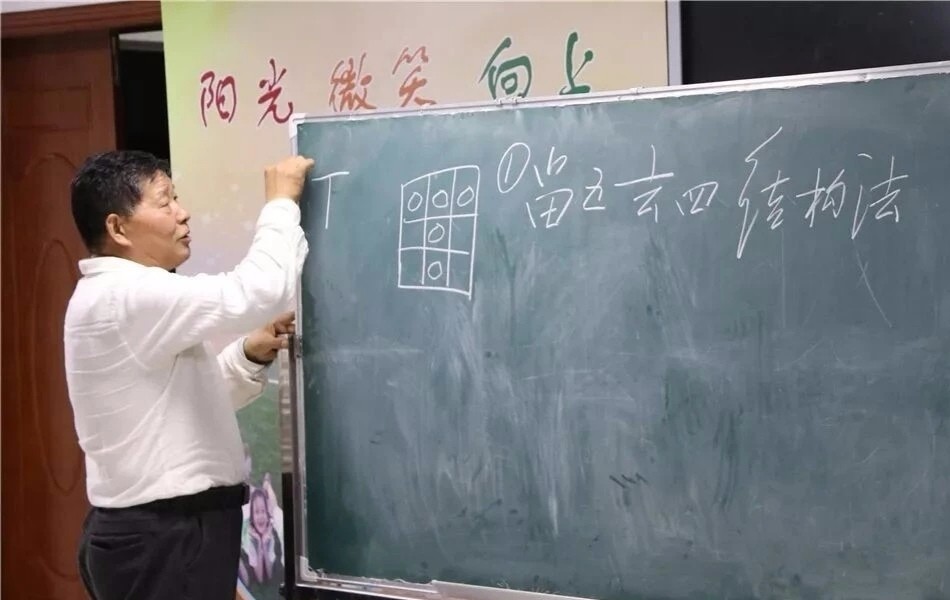 阳光 微笑 向上
T ①留五去四结构法